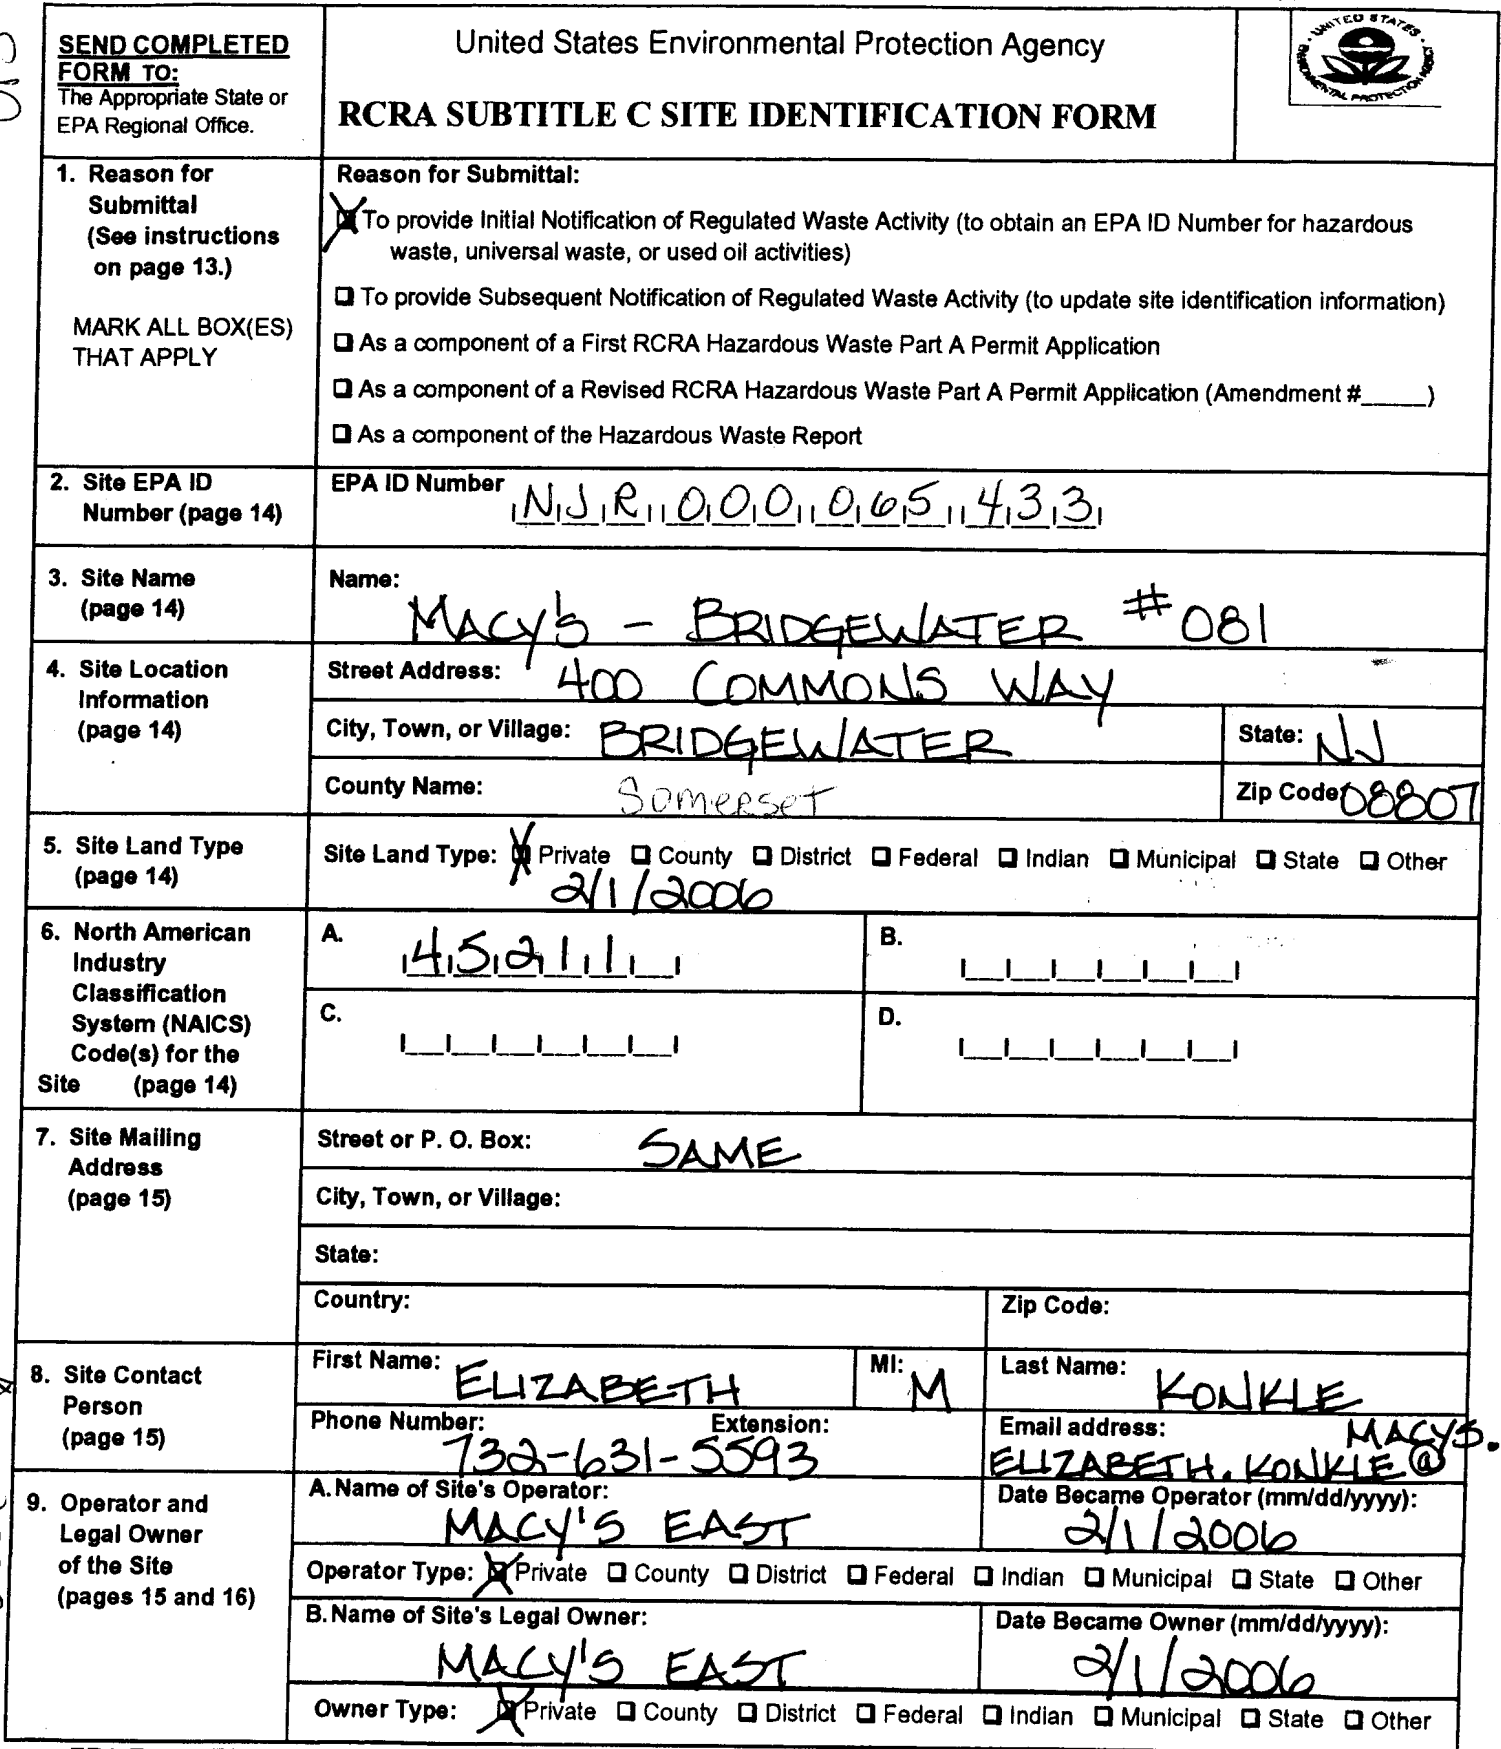 SEND COMPLETED
FORM TO:
The Appropriate State or
EPA Regional Office.
United States Environmental Protection Agency
RCRA SUBTITLE C SITE IDENTIFICATION FORM
UNITED STATES
ENVIRONMENTAL PROTECTION AGENCY
1. Reason for
Submittal
(See instructions
on page 13.)
MARK ALL BOX(ES)
THAT APPLY
Reason for Submittal:
To provide Initial Notification of Regulated Waste Activity (to obtain an EPA ID Number for hazardous
waste, universal waste, or used oil activities)
To provide Subsequent Notification of Regulated Waste Activity (to update site identification information)
As a component of a First RCRA Hazardous Waste Part A Permit Application
As a component of a Revised RCRA Hazardous Waste Part A Permit Application (Amendment #_____)
As a component of the Hazardous Waste Report
2. Site EPA ID
Number (page 14)
EPA ID Number NJR 000 065 433
3. Site Name
(page 14)
Name:
MACY'S - BRIDGEWATER #081
4. Site Location
Information
(page 14)
Street Address: 400 COMMONS WAY
City, Town, or Village: BRIDGEWATER State: NJ
County Name: Somerset Zip Code: 08807
5. Site Land Type
(page 14)
Site Land Type: Private County District Federal Indian Municipal State Other
2/1/2006
6. North American
Industry
Classification
System (NAICS)
Code(s) for the
Site (page 14)
A. 45211
B.
C.
D.
7. Site Mailing
Address
(page 15)
Street or P. O. Box: SAME
City, Town, or Village:
State:
Country: Zip Code:
8. Site Contact
Person
(page 15)
First Name: ELIZABETH MI: M Last Name: KONKLE
Phone Number: 732-631-5593 Extension:
Email address: ELIZABETH.KONKLE@ MACYS.
9. Operator and
Legal Owner
of the Site
(pages 15 and 16)
A. Name of Site's Operator:
MACY'S EAST
Date Became Operator (mm/dd/yyyy):
2/1/2006
Operator Type: Private County District Federal Indian Municipal State Other
B. Name of Site's Legal Owner:
MACY'S EAST
Date Became Owner (mm/dd/yyyy):
2/1/2006
Owner Type: Private County District Federal Indian Municipal State Other